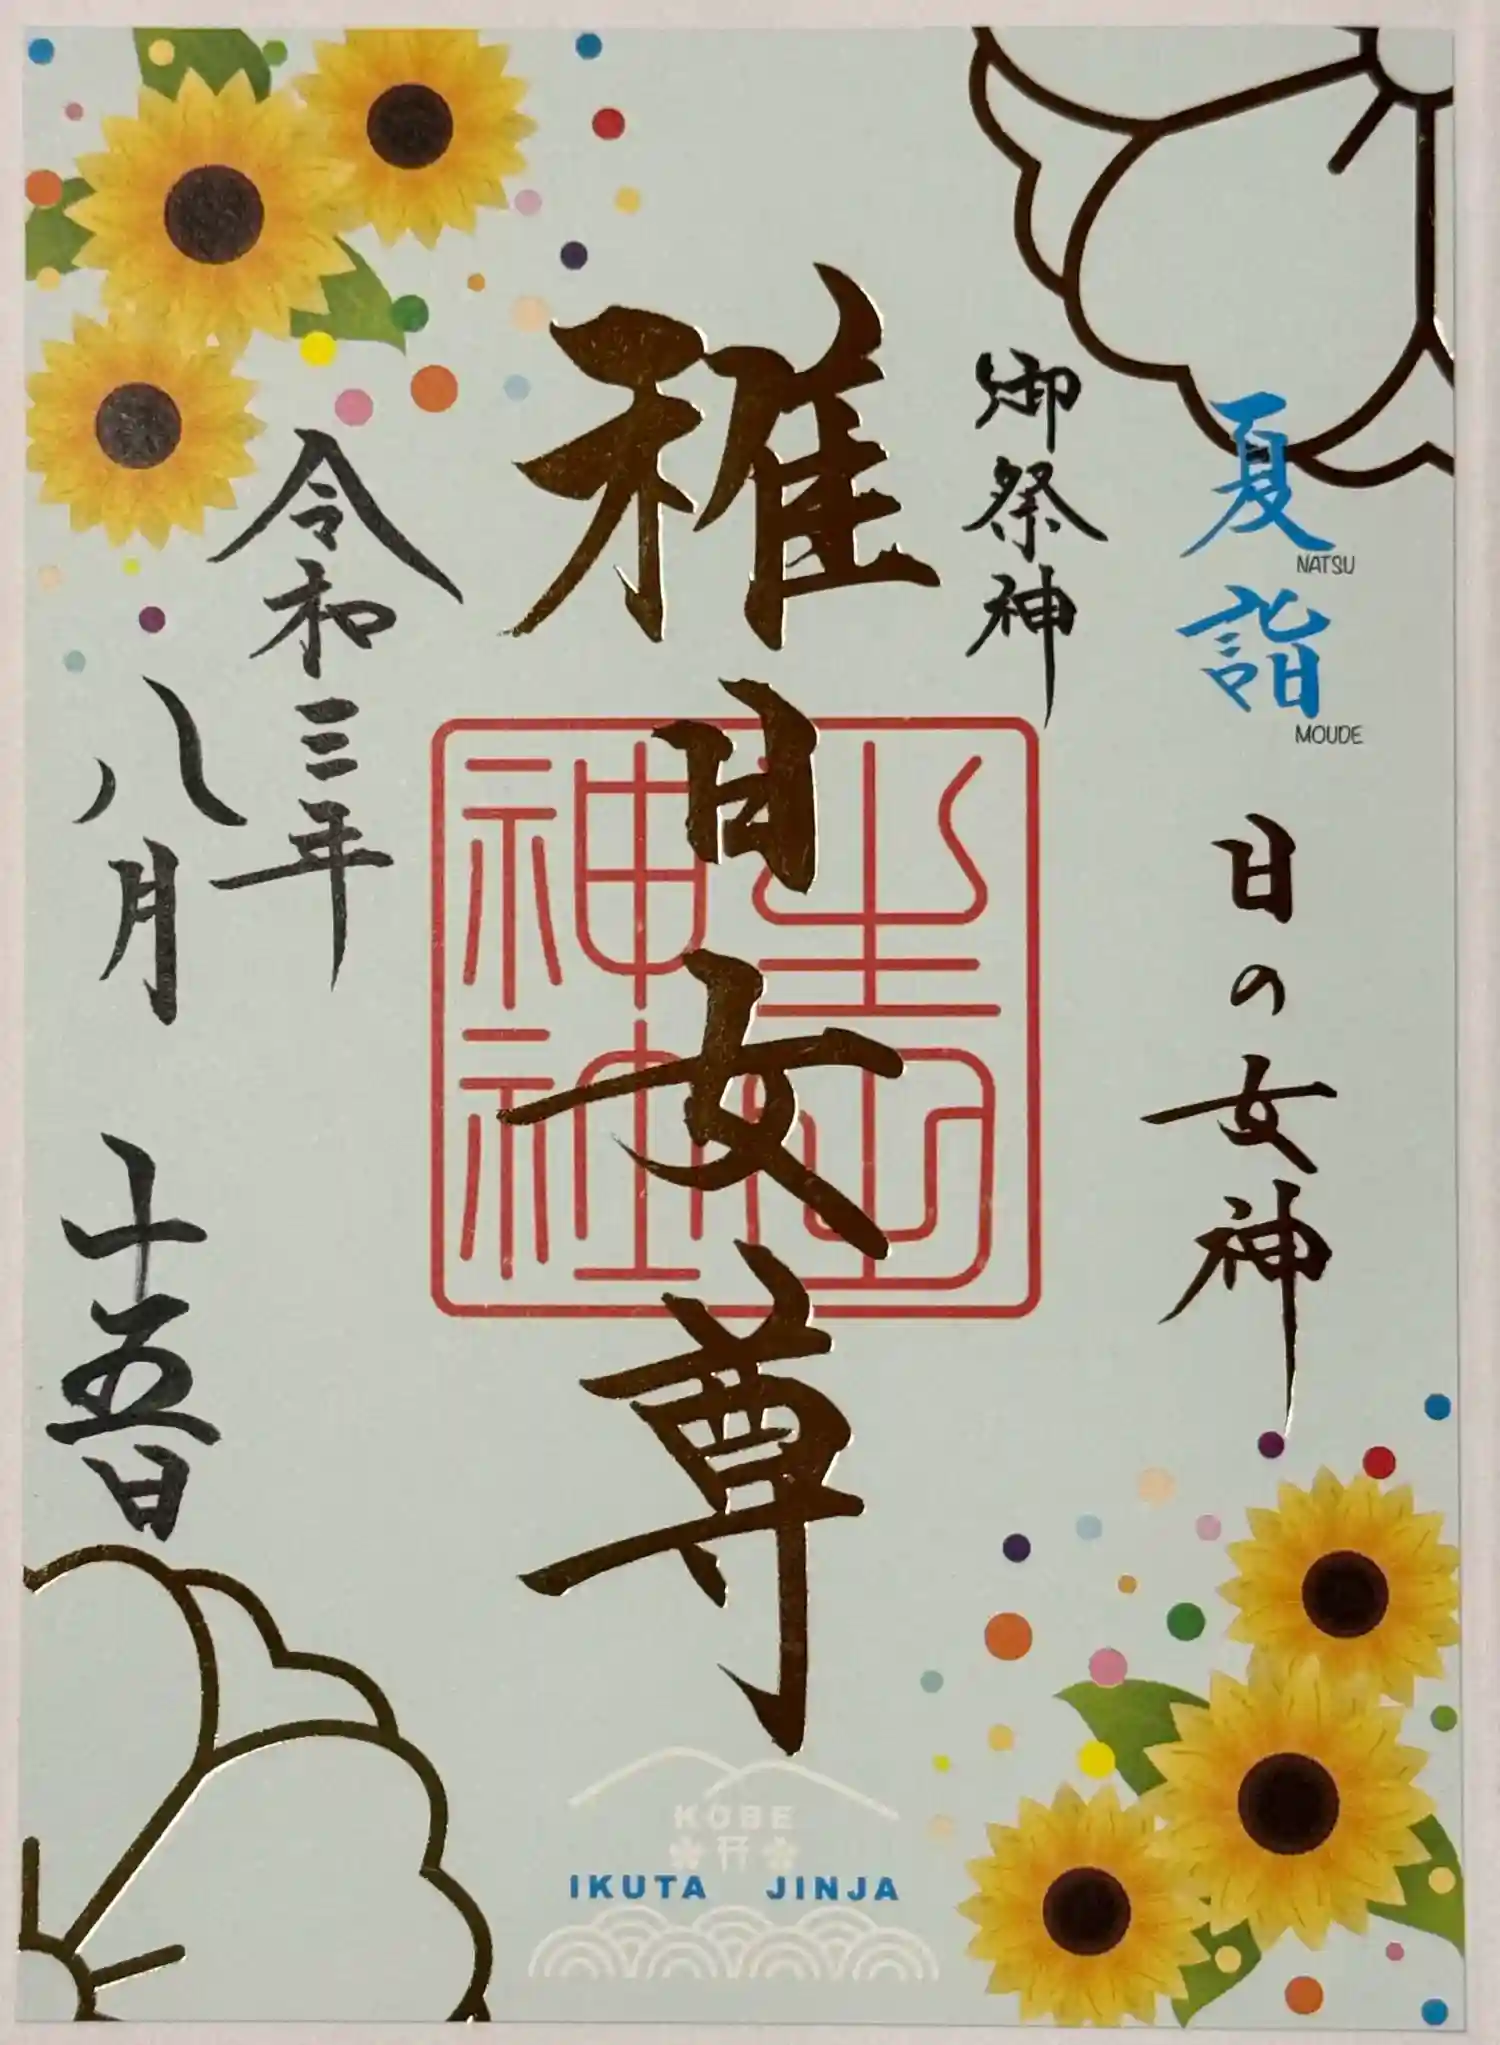 夏詣
NATSU
MOUDE
日の女神
御祭神
稚日女尊
生田神社
令和三年
八月 十五日
KOBE
IKUTA JINJA